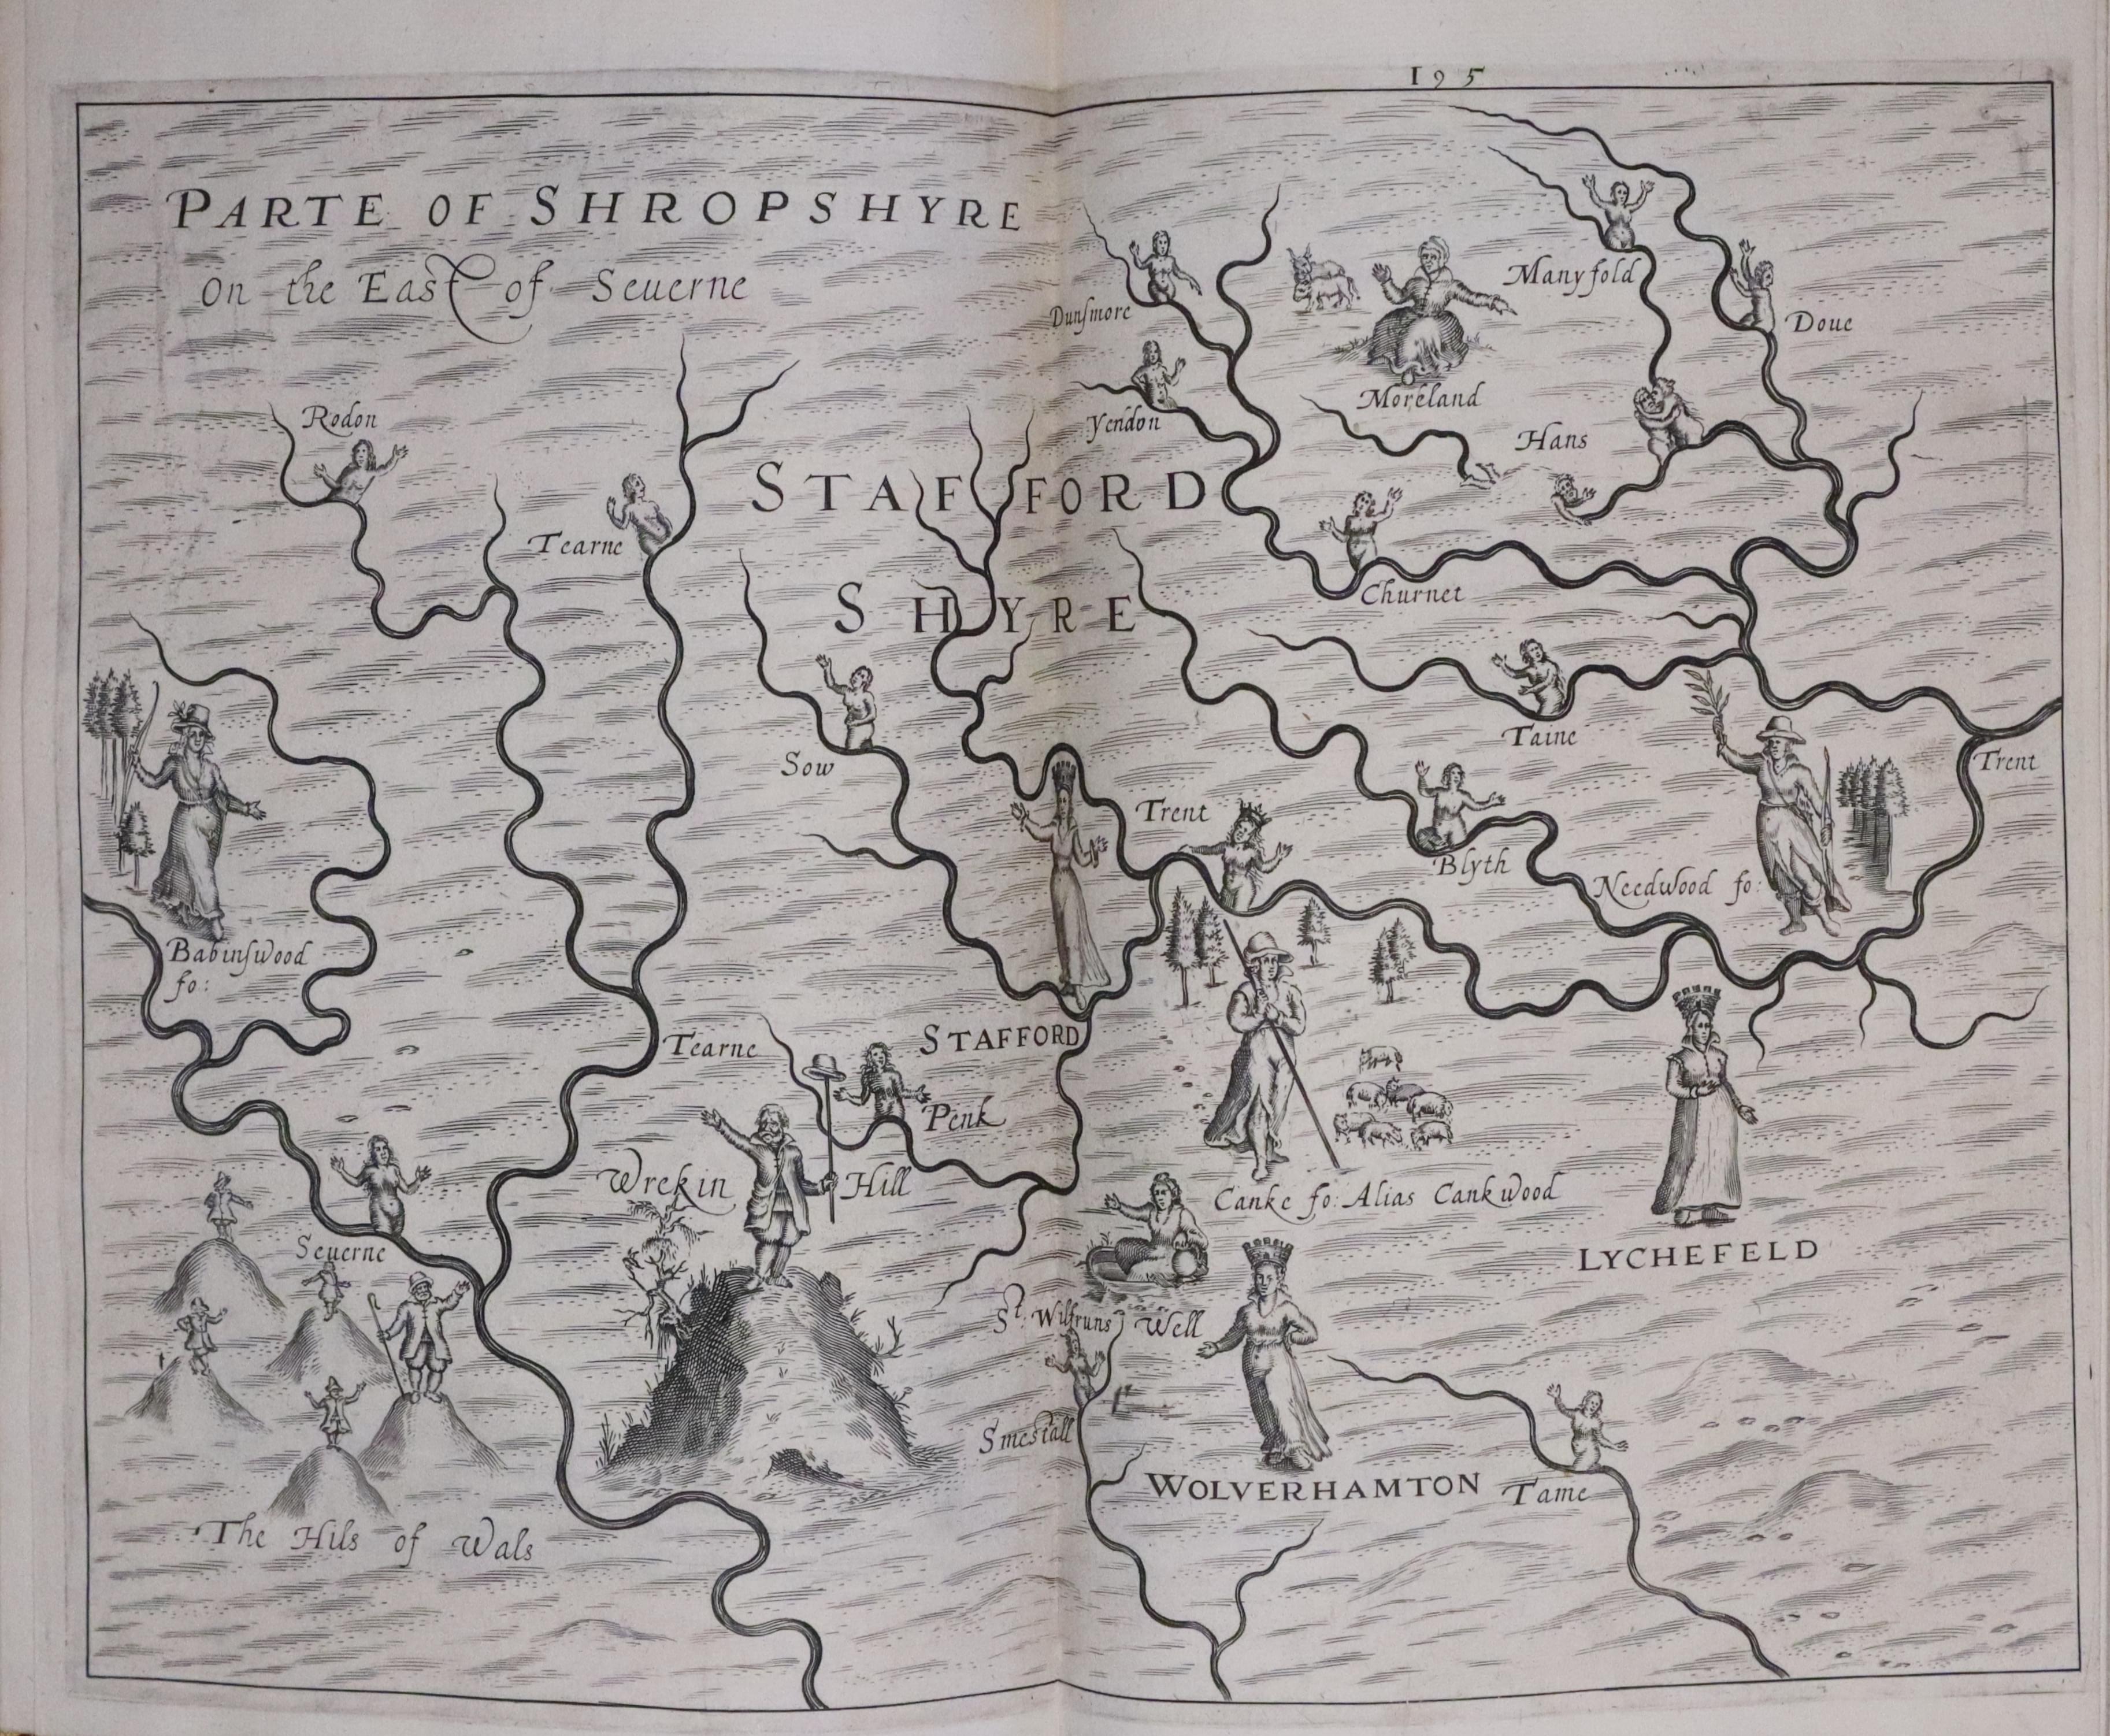 195
PARTE OF SHROPSHYRE
On the East of Seuerne
STAFFORD
SHYRE
Rodon
Tearne
Dunsmore
Yendon
Moreland
Manyfold
Doue
Hans
Churnet
Taine
Trent
Sow
Trent
Blyth
Needwood fo:
Babinswood
fo:
Tearne
STAFFORD
Penk
Wrekin Hill
Canke fo: Alias Cankwood
LYCHEFELD
Seuerne
St. Wilfruns Well
Smestall
WOLVERHAMTON
Tame
The Hils of Wals